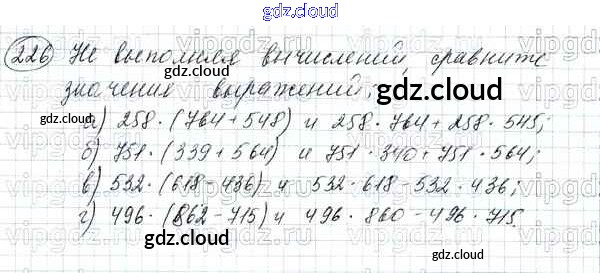 gdz.cloud
gdz.cloud
226) Не выполняя вычислений, сравните
gdz.cloud
значения выражений:
gdz.cloud
а) 258 · (764 + 548) и 258 · 764 + 258 · 545;
б) 751 · (339 + 564) и 751 · 340 + 751 · 564;
в) 532 · (618 - 436) и 532 · 618 - 532 · 436;
г) 496 · (862 - 715) и 496 · 860 - 496 · 715.
gdz.cloud
gdz.cloud
gdz.cloud